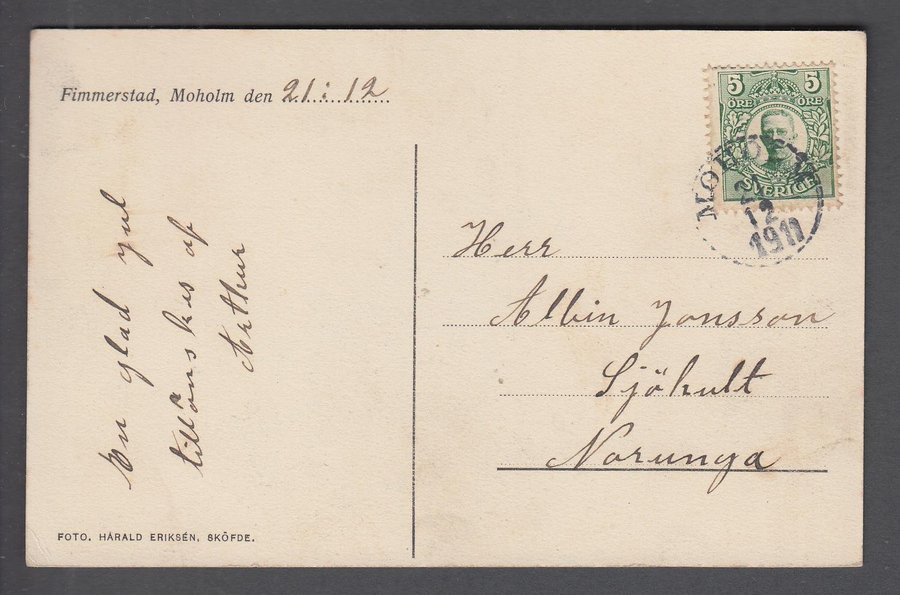 Fimmerstad, Moholm den 21:12
En glad jul
tillönskes af
Arthur
FOTO. HARALD ERIKSÉN, SKÖFDE.
5 5
ÖRE ÖRE
SVERIGE
MOHOLM
21
12
1911
Herr
Albin Jonsson
Sjöhult
Norunga